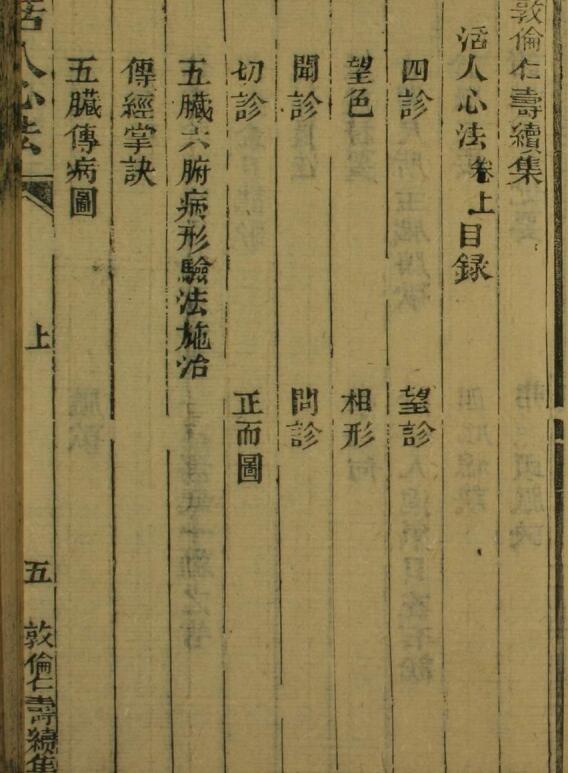 敦倫仁壽續集
活人心法卷上目録
四診 望診
望色 相形
聞診 問診
切診 正面圖
五臟六腑病形驗法施治
傳經掌訣
五臟傳病圖
活人心法 上 五 敦倫仁壽續集